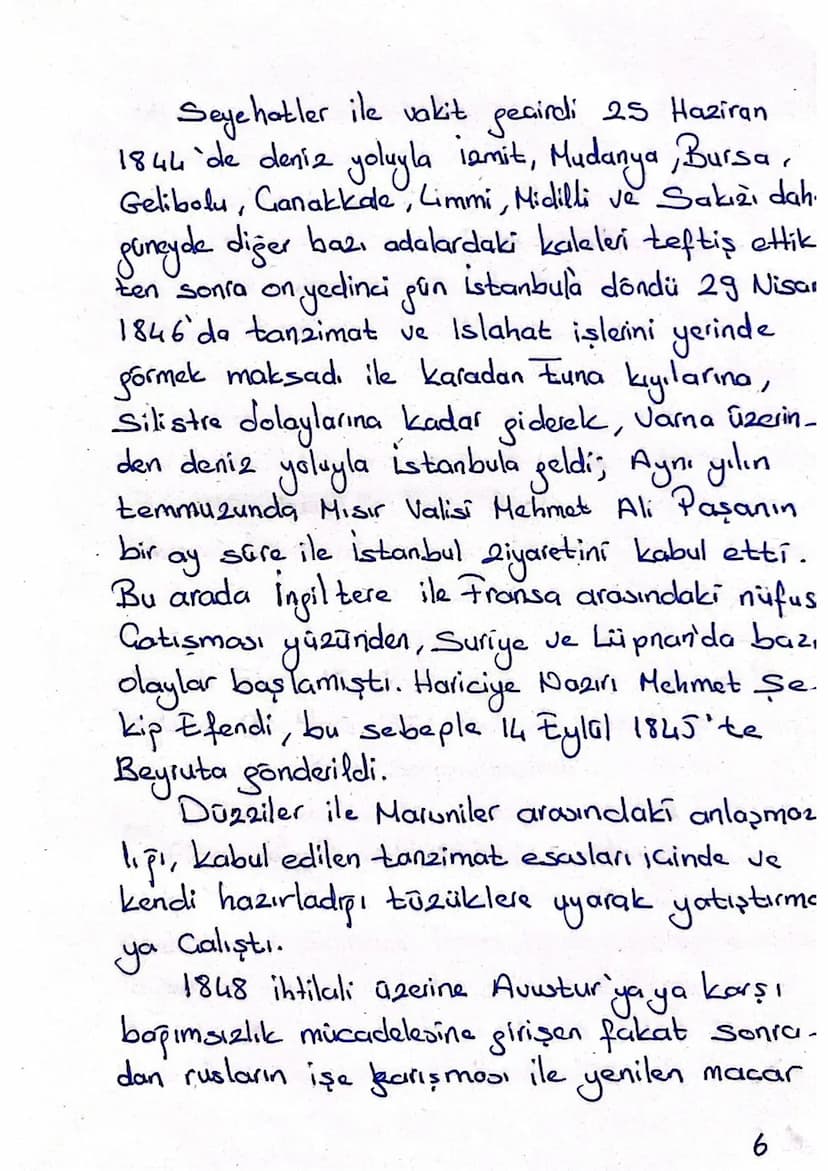 Seyehatler ile vakit geçirdi 25 Haziran
1844'de deniz yoluyla izmit, Mudanya, Bursa,
Gelibolu, Çanakkale, Limmi, Midilli ve Sakızı dah
güneyde diğer bazı adalardaki kaleleri teftiş ettik
ten sonra on yedinci gün istanbula döndü 29 Nisan
1846'da tanzimat ve Islahat işlerini yerinde
görmek maksadı ile karadan Tuna kıyılarına,
Silistre dolaylarına kadar giderek, Varna üzerin-
den deniz yoluyla istanbula geldi; Aynı yılın
temmuzunda Mısır Valisi Mehmet Ali Paşanın
bir ay süre ile istanbul ziyaretini kabul etti.
Bu arada İngiltere ile Fransa arasındaki nüfus
Çatışması yüzünden, Suriye ve Lüpnan'da bazı
olaylar başlamıştı. Hariciye Nazırı Mehmet Şe-
kip Efendi, bu sebeple 14 Eylül 1845'te
Beyruta gönderildi.
Dürziler ile Maruniler arasındaki anlaşmaz
lığı, kabul edilen tanzimat esasları içinde ve
kendi hazırladığı tüzüklere uyarak yatıştırma
ya Çalıştı.
1848 ihtilali üzerine Avustur'ya ya karşı
bağımsızlık mücadelesine girişen fakat sonra-
dan rusların işe karışması ile yenilen macar
6